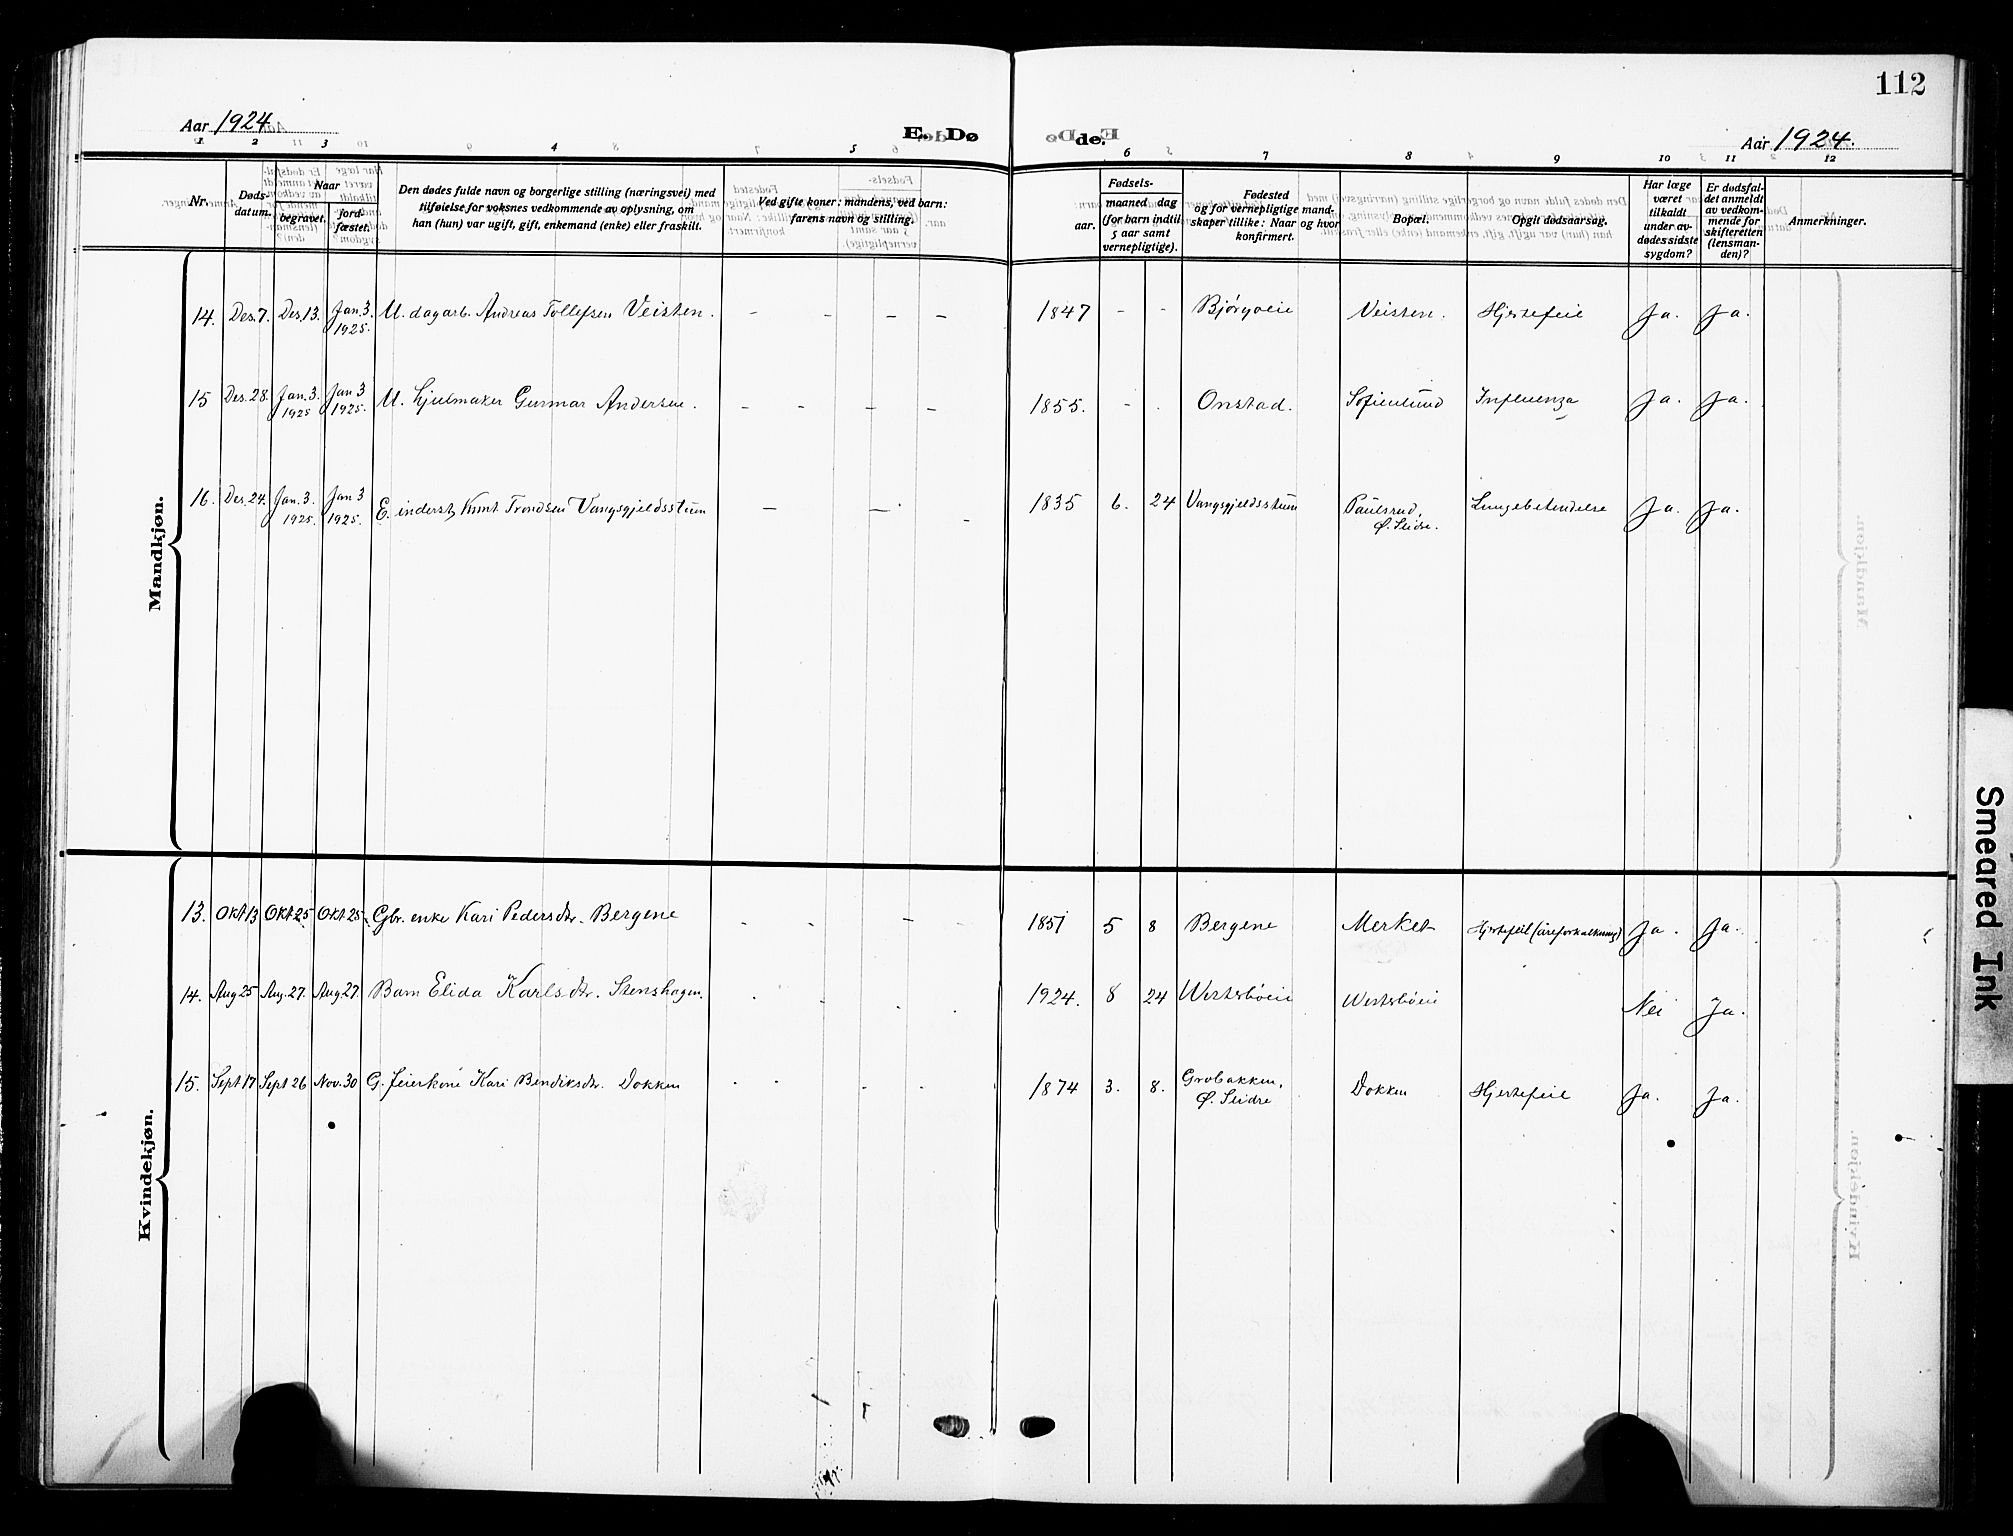 112
Aar 1924
E. Dø
de.
Aar 1924.
1 2 3 4 5 6 7 8 9 10 11 12
Nr.
Døds-
datum.
Naar
begravet.
jord-
fæstet.
Den dødes fulde navn og borgerlige stilling (næringsvei) med
tilføielse for voksnes vedkommende av oplysning, om
han (hun) var ugift, gift, enkemand (enke) eller fraskilt.
Ved gifte koner: mandens, ved barn:
farens navn og stilling.
Fødsels-
aar.
maaned dag
(for barn indtil
5 aar samt
vernepligtige).
Fødested
og for vernepligtige mand-
skaper tillike: Naar og hvor
konfirmert.
Bopæl.
Opgit dødsaarsag.
Har læge
været
tilkaldt
under av-
dødes sidste
sygdom?
Er dødsfal-
det anmeldt
av vedkom-
mende for
skifteretten
(lensman-
den)?
Anmerkninger.
Mandkjøn.
14. Des. 7. Des. 13. Jan. 3. 1925. U. dagarb. Andreas Tollefsen Veisten. - - - - 1847 - - Bjørgoeie Veisten. Hjertefeil Ja. Ja.
15 Des. 28. Jan. 3. 1925 Jan 3 1925. U. Hjulmaker Gunnar Andersen. - - - - 1855. - . Onstad. Sofienlund Influenza Ja. Ja.
16. Des. 24. Jan. 3. 1925. Jan 3 1925. E. inderst, Knut Trondsen Vangsgjeldsstum - - - 1835 6. 24 Vangsgjeldsstum Paulsrud, Ø. Slidre. Lungebetendelse Ja. Ja.
Kvindekjøn.
13. Okt 13 Okt 25 Okt 25 Gbr. enke Kari Pedersdtr. Bergene - - - - 1851 5 8 Bergene Merket Hjertefeil (åreforkalkning) Ja. Ja.
14. Aug 25 Aug. 27. Aug 27. Barn Elida Karlsdtr. Stenshagen. 1924. 8 24 Westerbøeie Westerbøeie Nei Ja.
15. Sept 17 Sept 26 Nov. 30 G. feierkone Kari Bendiksdtr. Dokken 1874 3. 8. Grøbakken, Ø. Slidre Dokken Hjertefeil Ja. Ja.
Smeared Ink